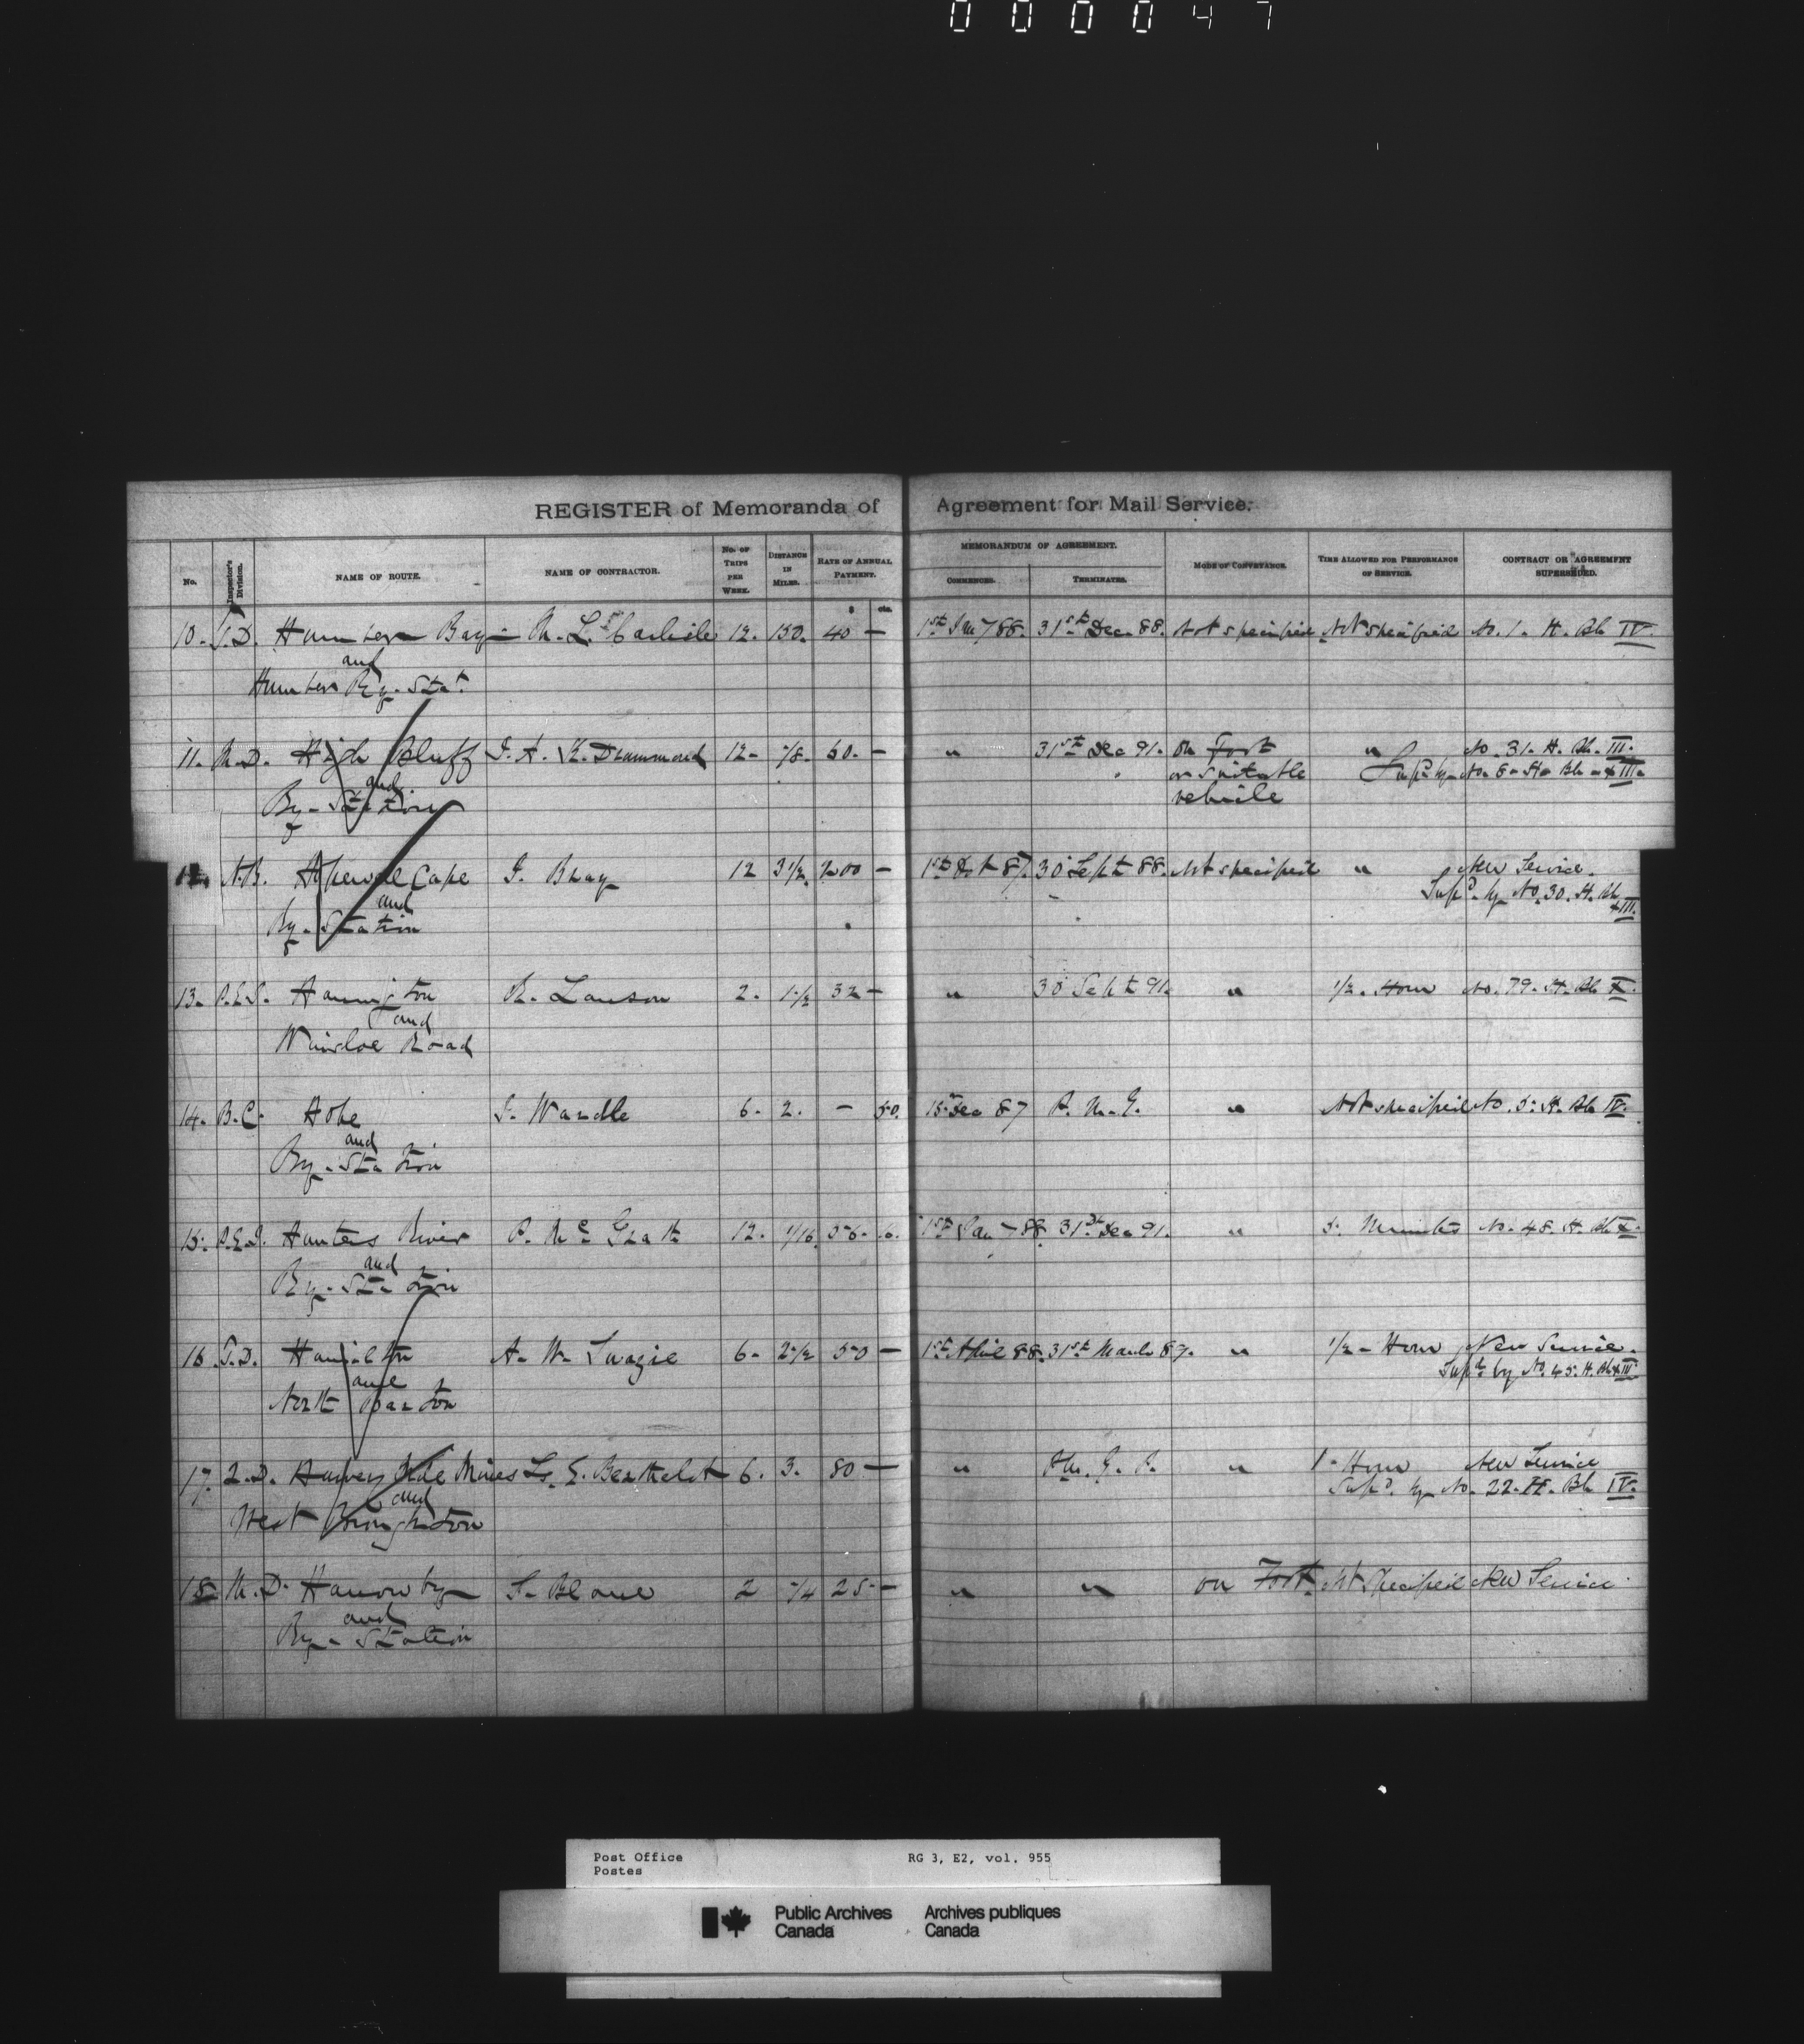 000047
REGISTER of Memoranda of Agreement for Mail Service.
No. Inspector's Division. NAME OF ROUTE. NAME OF CONTRACTOR. No. OF TRIPS PER WEEK. DISTANCE IN MILES. RATE OF ANNUAL PAYMENT. MEMORANDUM OF AGREEMENT. COMMENCES. TERMINATES. MODE OF CONVEYANCE. TIME ALLOWED FOR PERFORMANCE OF SERVICE. CONTRACT OR AGREEMENT SUPERSEDED.
$ cts.
10. T.D. Humber Bay M. L. Carlisle 12. 150. 40 — 1st Jany 88. 31st Dec. 88. Not specified Not specified No. 1. H. Bk IV.
and
Humber Ry. Stat.
11. M.D. High Bluff J. A. K. Drummond 12. 1/8. 60. — " 31st Dec 91. On Foot " No. 31. H. Bk. III.
and or suitable Supd. by No. 8
Ry. Station vehicle
12. N.B. Hopewell Cape J. Bray 12 3 1/2 200 — 1st Oct 87. 30 Sept 88. Not specified " New Service.
and Supd. by No. 30. H. Bk
Ry. Station XIII.
13. P.E.I. R. Lawson 2. 1 1/2 32 — " 30 Sept 91. " 1/2. Hour No. 79. H. Bk X.
and
Winsloe Road
14. B.C. Hope J. Wardle 6. 2. — 50. 15 Dec 87 P.M.G. " Not specified No. 5. H. Bk IV.
and
Ry. Station
15. P.E.I. Hunters River P. McGrath 12. 1/16. 56. 6. 1st Jany 88. 31st Dec 91. " 5. Minutes No. 48. H. Bk X.
and
Ry. Station
16. T.D. Hamilton A. W. Swazie 6. 2 1/2 50 — 1st April 88. 31st March 89. " 1/2 - Hour New Service.
and Supd by No. 45. H. Bk
North Barton
17. Q.D. Harvey Hill Mines Ls. E. Berthelot 6. 3. 80 — " P.M.G. P. " 1 - Hour New Service
and Supd. by No. 22. H. Bk IV.
West Broughton
18 M.D. Harrowby 2 1/4 25 — " " on Foot. Not Specified New Service.
and
Ry. Station
Post Office RG 3, E2, vol. 955
Postes
Public Archives Archives publiques
Canada Canada